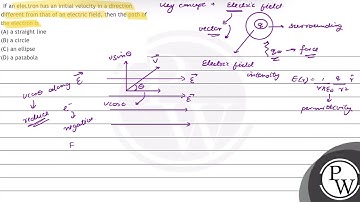 If an electron has an initial velocity in a direction
different from that of an electric field, then the path of
the electron is
(A) a straight line
(B) a circle
(C) an ellipse
(D) a parabola
Key concept → Electric field
vector
q
surrounding
q₀ → force
Electric field
intensity E(r) = 1/4πε₀ q/r² r̂
permittivity
vsinθ
v⃗
E⃗
θ
vcosθ
vcosθ along E⃗
reduce
e⁻
negative
F
P
W